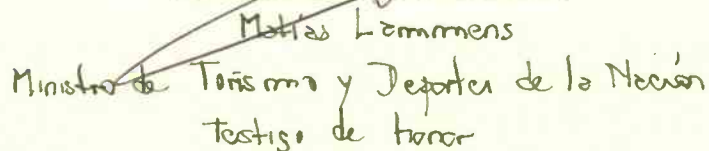 Matías Lammens
Ministro de Turismo y Deportes de la Nación
Testigo de honor